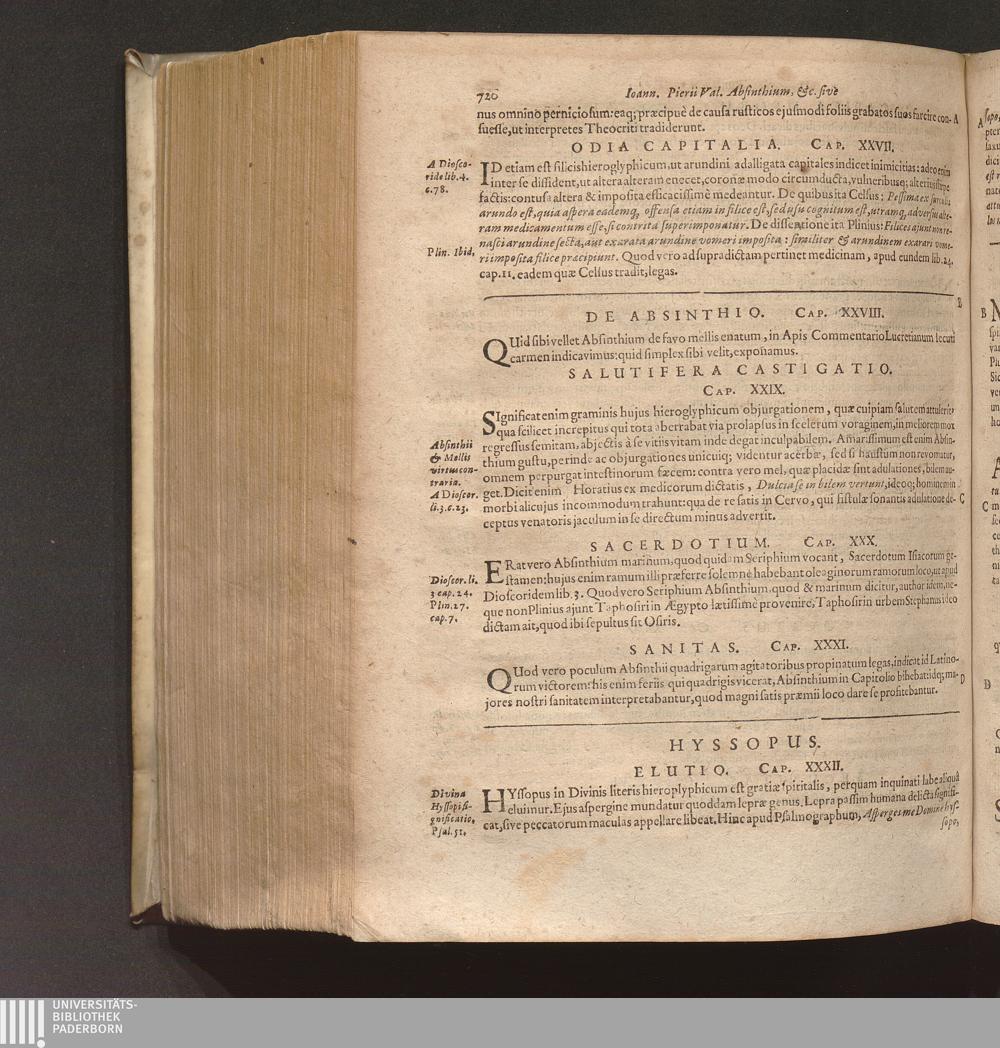 720 Ioann. Pierii Val. Absinthium, &c. sivè
nus omninò perniciosum: eaq; præcipuè de causa rusticos ejusmodi foliis grabatos suos farcire con- A
suesse, ut interpretes Theocriti tradiderunt.
ODIA CAPITALIA. CAP. XXVII.
A Dioscoride lib. 4. c. 78.
ID etiam est filicis hieroglyphicum, ut arundini adalligata capitales indicet inimicitias: adeo enim
inter se dissident, ut altera alteram enecet, coronæ modo circumducta, vulneribusq; alterius sæpe
factis: contusa altera & imposita efficacissimè medeantur. De quibus ita Celsus: Pessima ex surculis
arundo est, quia aspera eademq, offensa etiam in filice est, sed usu cognitum est, utramq, adversus alte-
ram medicamentum esse, si contrita superimponatur. De dissentione ita Plinius: Filices ajunt non re-
nasci arundine secta, aut exarata arundine vomeri imposita: similiter & arundinem exarari vome-
Plin. Ibid.
ri imposita filice præcipiunt. Quod vero ad supradictam pertinet medicinam, apud eundem lib. 24.
cap. 11. eadem quæ Celsus tradit, legas.
B
DE ABSINTHIO. CAP. XXVIII.
QUid sibi vellet Absinthium de favo mellis enatum, in Apis Commentario Lucretianum secuti
carmen indicavimus: quid simplex sibi velit, exponamus.
SALUTIFERA CASTIGATIO.
CAP. XXIX.
SIgnificat enim graminis hujus hieroglyphicum objurgationem, quæ cuipiam salutem attulerit,
qua scilicet increpitus qui tota aberrabat via prolapsus in scelerum voraginem, in meliorem mox
Absinthii & Mellis virtus contraria.
regressus semitam, abjectis à se vitiis vitam inde degat inculpabilem. Amarissimum est enim Absin-
thium gustu, perinde ac objurgationes unicuiq; videntur acerbæ, sed si haustum non revomatur,
omnem perpurgat intestinorum fæcem: contra vero mel, quæ placidæ sint adulationes, bilem au-
A Dioscor. li. 3. c. 23.
get. Dicit enim Horatius ex medicorum dictatis, Dulcia se in bilem vertunt, ideoq; hominem in
morbi alicujus incommodum trahunt: qua de re satis in Cervo, qui fistulæ sonantis adulatione de- C
ceptus venatoris jaculum in se directum minus advertit.
SACERDOTIUM. CAP. XXX.
ERat vero Absinthium marinum, quod quidam Seriphium vocant, Sacerdotum Isiacorum ge-
Dioscor. li. 3 cap. 24. Plin. 27. cap. 7.
stamen: hujus enim ramum illi præferre solemne habebant oleaginorum ramorum loco, ut apud
Dioscoridem lib. 3. Quod vero Seriphium Absinthium, quod & marinum dicitur, author idem, ne-
que non Plinius ajunt Taphosiri in Ægypto lætissimè provenire, Taphosirin urbem Stephanus ideo
dictam ait, quod ibi sepultus sit Osiris.
SANITAS. CAP. XXXI.
QUod vero poculum Absinthii quadrigarum agitatoribus propinatum legas, indicat id Latino-
rum victorem: his enim feriis qui quadrigis vicerat, Absinthium in Capitolio bibebat: idq; ma- D
jores nostri sanitatem interpretabantur, quod magni satis præmii loco dare se profitebantur.
HYSSOPUS.
ELUTIO. CAP. XXXII.
Divina Hyssopi significatio, Psal. 51.
HYssopus in Divinis literis hieroplyphicum est gratiæ spiritalis, perquam inquinati labe aliqua
eluimur. Ejus aspergine mundatur quoddam lepræ genus. Lepra passim humana delicta signifi-
cat, sive peccatorum maculas appellare libeat. Hinc apud Psalmographum, Asperges me Domine hys-
sopo,
UNIVERSITÄTS-
BIBLIOTHEK
PADERBORN